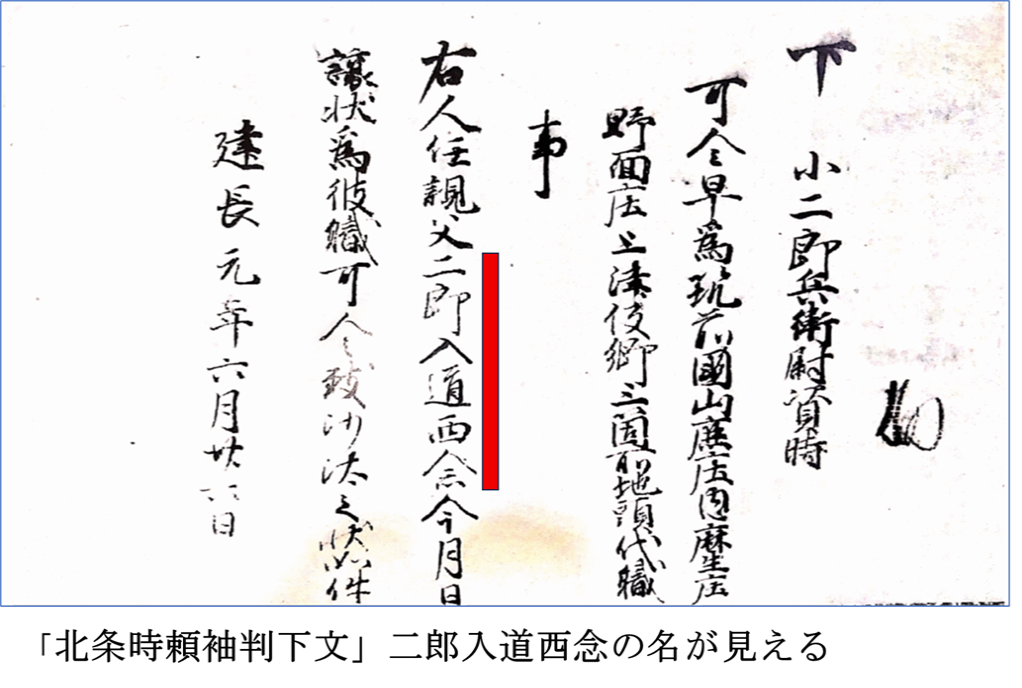 下 小二郎兵衛尉資時
可令早為筑前國山鹿庄内麻生庄
野面庄上津役郷三箇所地頭代職
事
右人任親父二郎入道西念今月日
譲状為彼職可令致沙汰之状如件
建長元年六月廿六日
「北条時頼袖判下文」二郎入道西念の名が見える